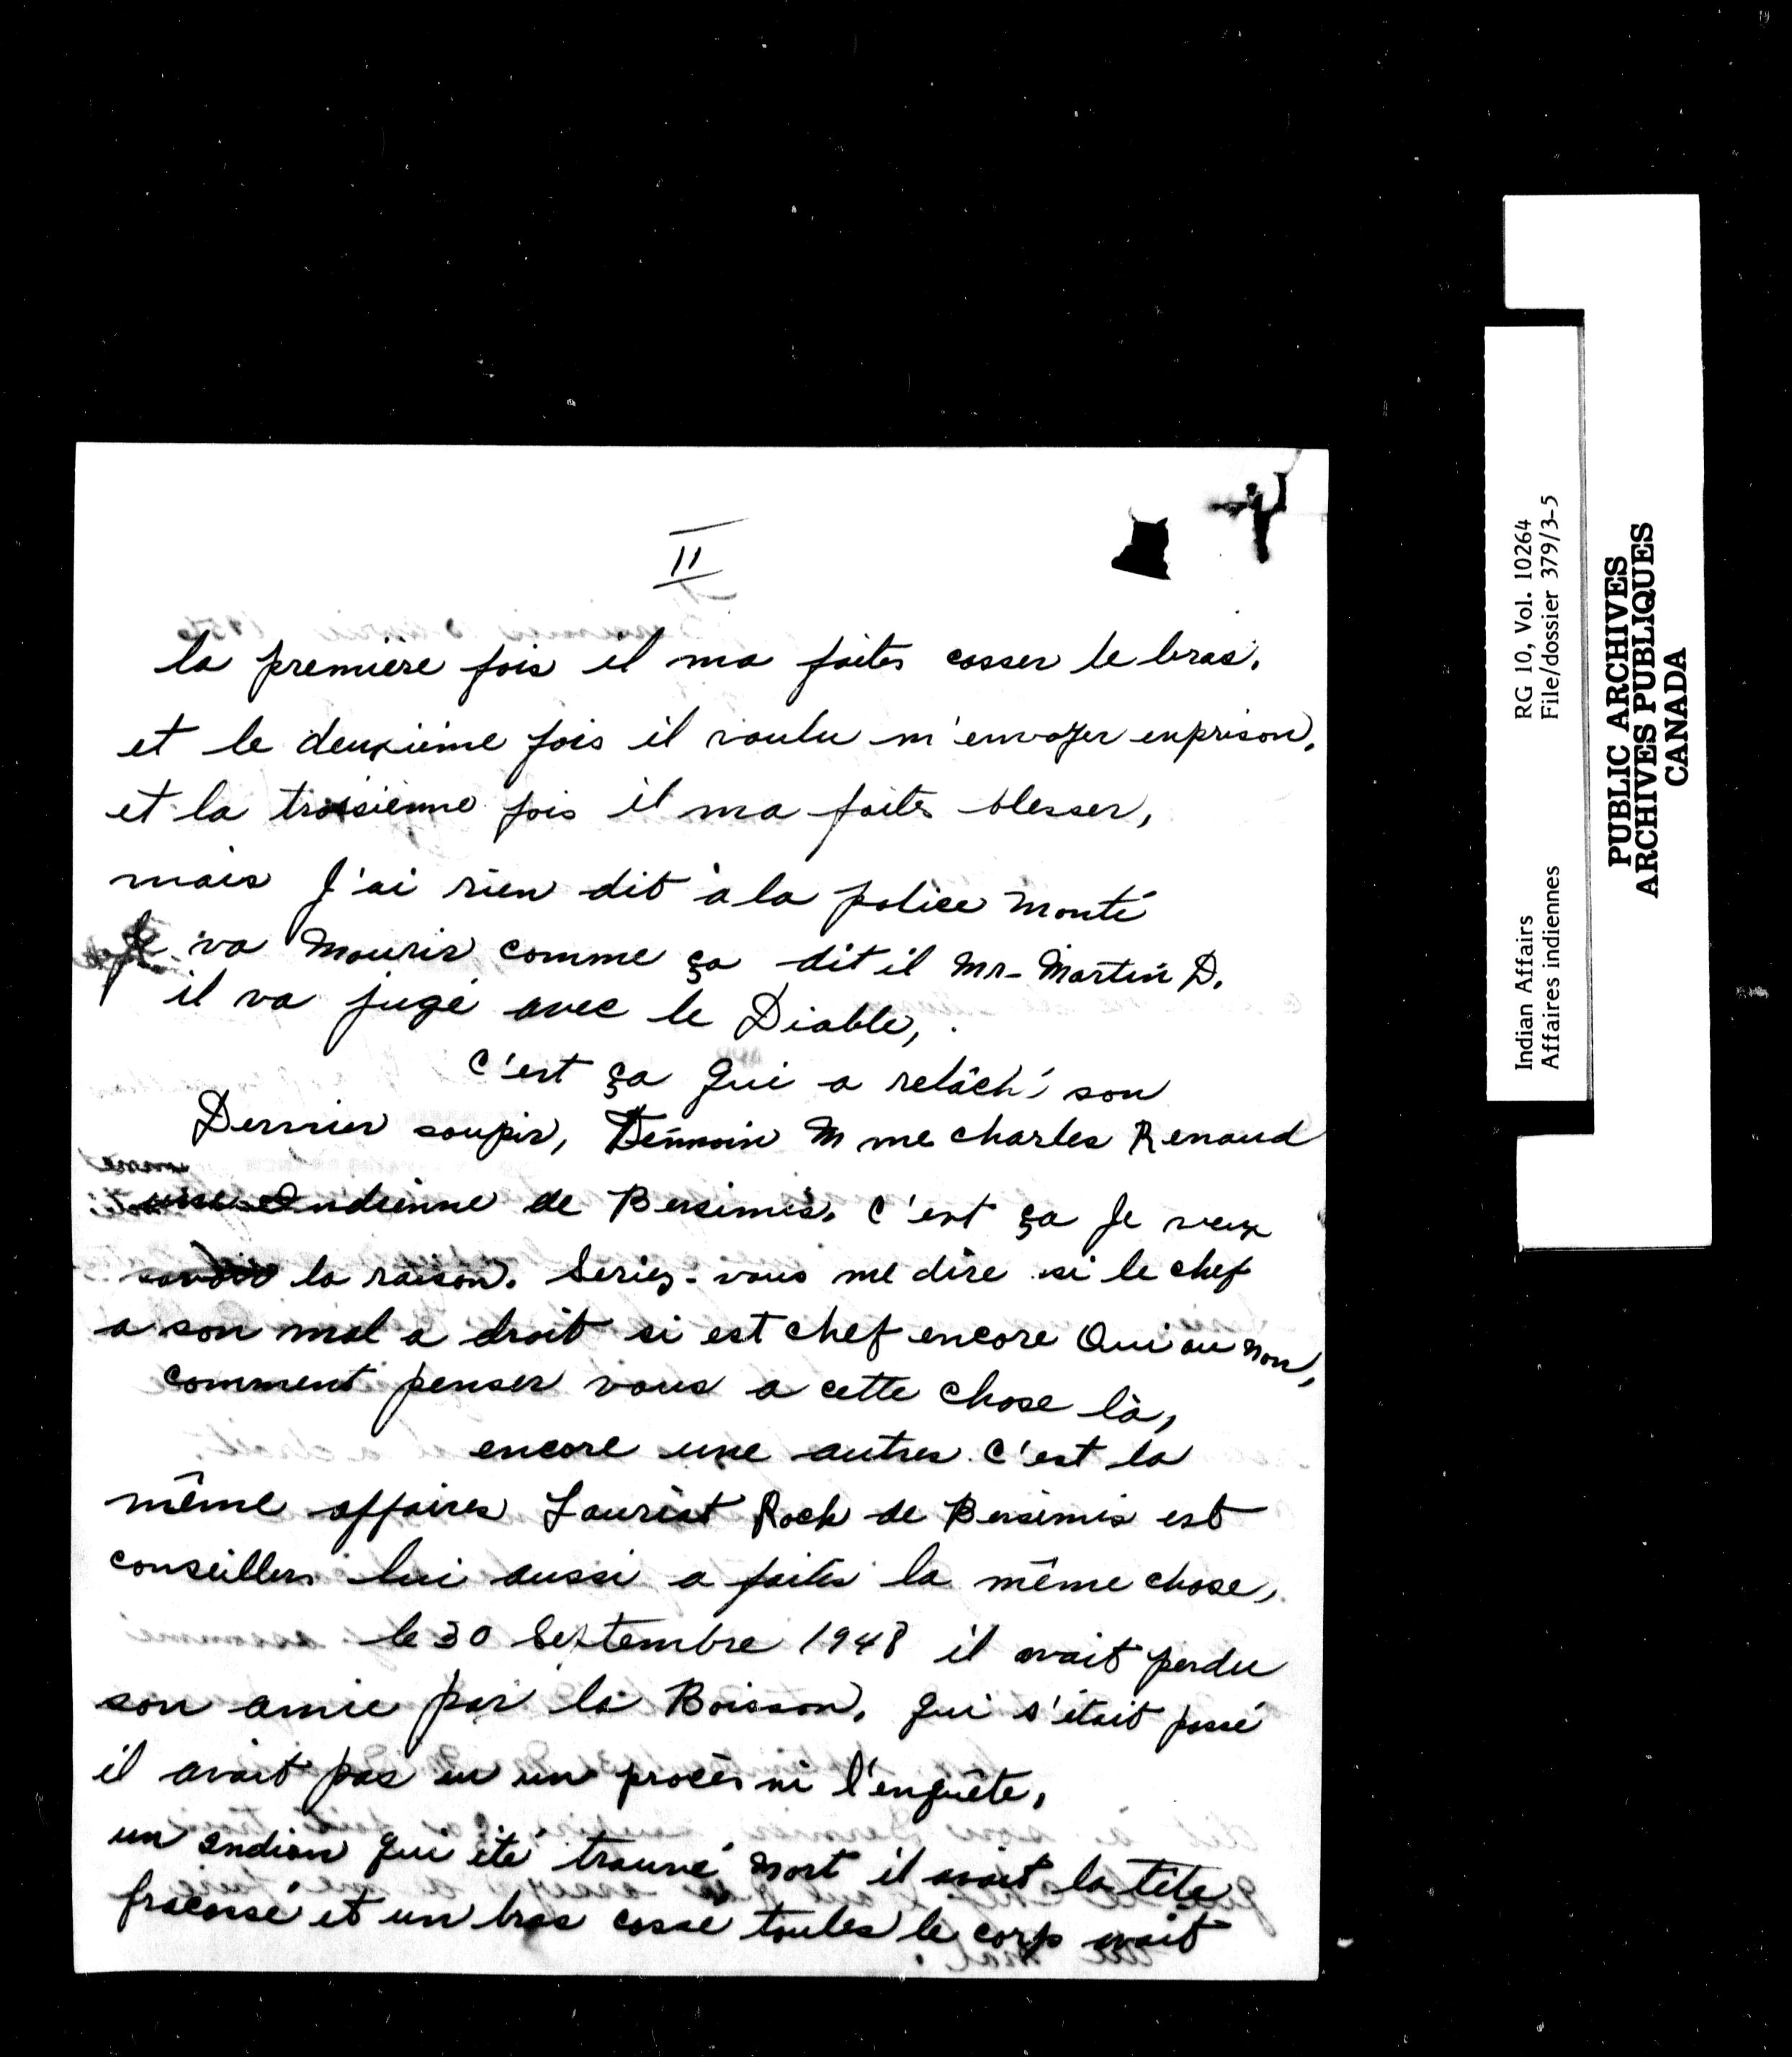 II
la premiere fois il ma faites casser le bras.
et le deuxiéme fois il voulu m'envoyer enprison.
et la troisienne fois il ma faites blesser,
mais J'ai rien dit à la police monté
Je va mourir comme ça dit il Mr-Martin D.
il va jugé avec le Diable,
c'est ça qui a relâché son
Dernier soupir, Témoin Mme charles Renaud
une Indienne de Bersimis. c'est ça Je veux
savoir la raison. Seriez-vous me dire si le chef
a son mal a droit si est chef encore Oui ou non,
comment penser vous a cette chose là,
encore une autres c'est la
même affaires Lauriat Rock de Bersimis est
conseillers lui aussi a faites la même chose,
le 30 Septembre 1948 il avait perdu
son amie par la Boisson. qui s'était passé
il avait pas eu un procès ni l'enquête,
un Indien qui été trouvé mort il avait la tête
fracassé et un bras cassé toutes le corp avait
RG 10, Vol. 10264
File/dossier 379/3-5
Indian Affairs
Affaires indiennes
PUBLIC ARCHIVES
ARCHIVES PUBLIQUES
CANADA